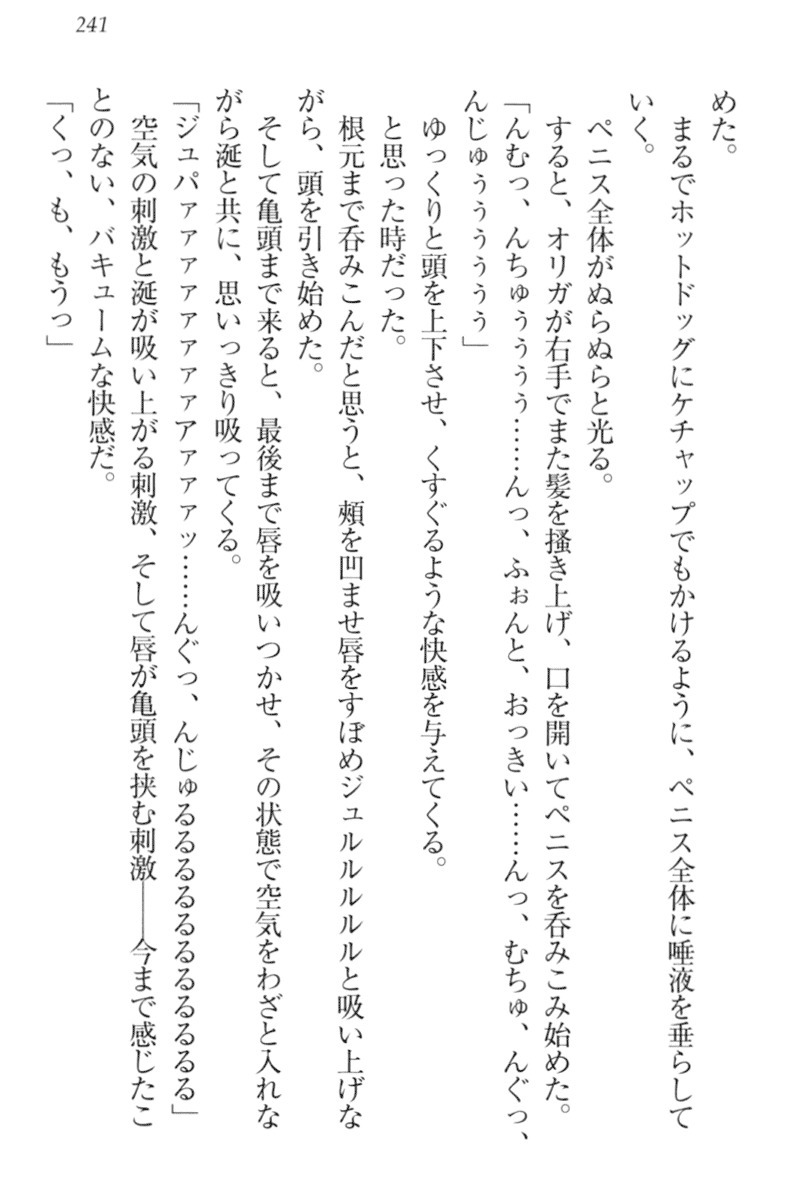 241
めた。
　まるでホットドッグにケチャップでもかけるように、ペニス全体に唾液を垂らして
いく。
　ペニス全体がぬらぬらと光る。
　すると、オリガが右手でまた髪を掻き上げ、口を開いてペニスを呑みこみ始めた。
「んむっ、んちゅぅぅぅぅ……んっ、ふぉんと、おっきい……んっ、むちゅ、んぐっ、
んじゅぅぅぅぅぅぅ」
　ゆっくりと頭を上下させ、くすぐるような快感を与えてくる。
　と思った時だった。
　根元まで呑みこんだと思うと、頰を凹ませ唇をすぼめジュルルルルルと吸い上げな
がら、頭を引き始めた。
　そして亀頭まで来ると、最後まで唇を吸いつかせ、その状態で空気をわざと入れな
がら涎と共に、思いっきり吸ってくる。
「ジュパァァァァァァァァアァァァッ……んぐっ、んじゅるるるるるるるるるるる」
　空気の刺激と涎が吸い上がる刺激、そして唇が亀頭を挟む刺激――今まで感じたこ
とのない、バキュームな快感だ。
「くっ、も、もうっ」